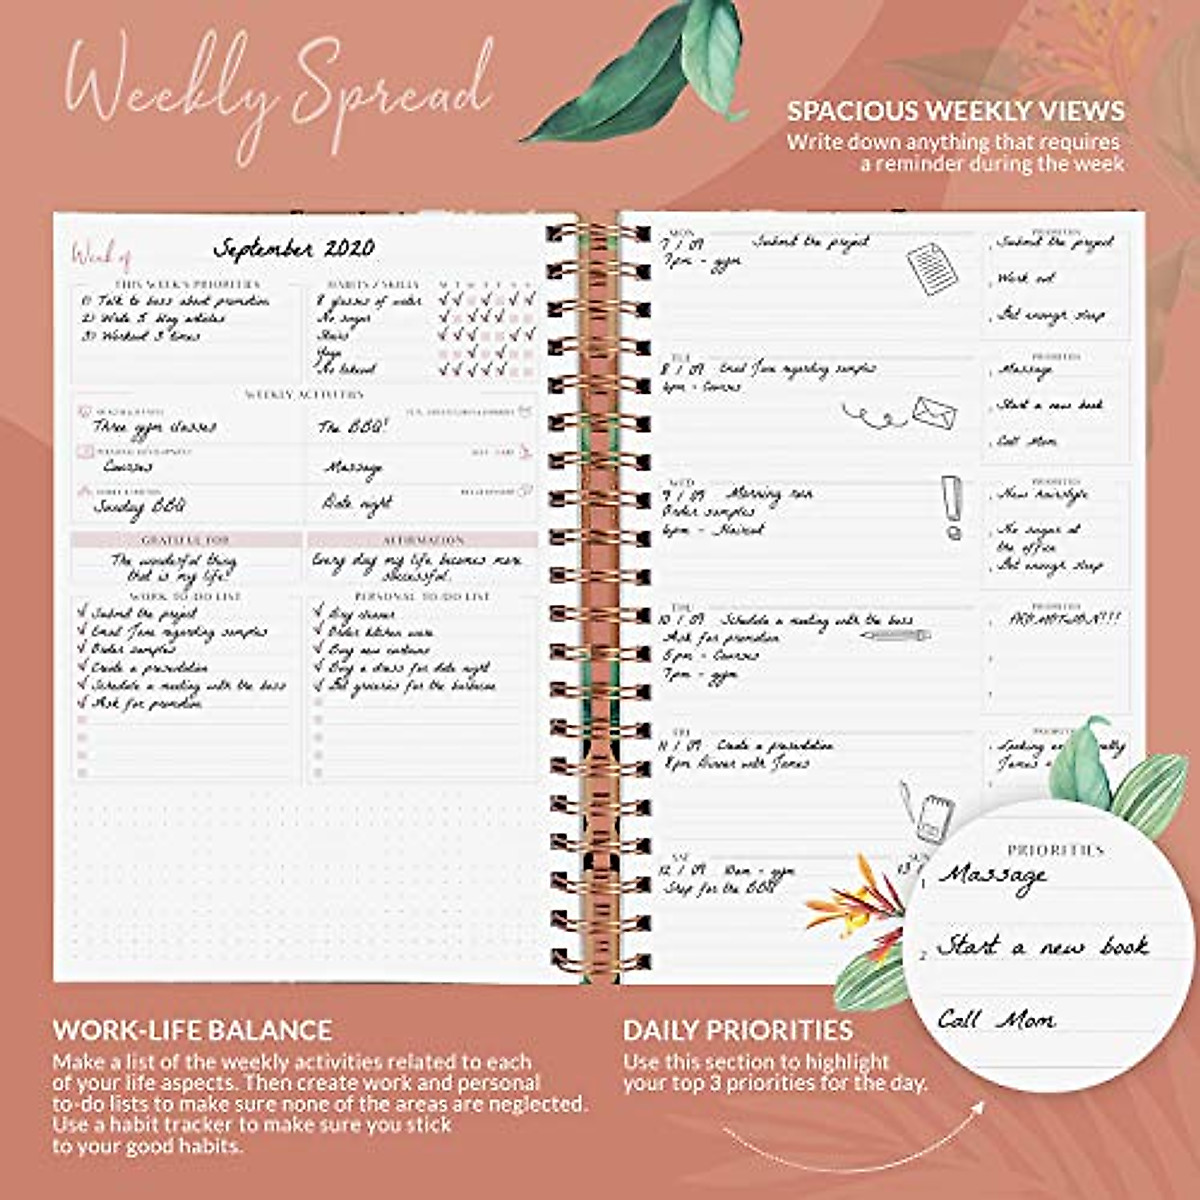 Weekly Spread
SPACIOUS WEEKLY VIEWS
Write down anything that requires
a reminder during the week
Week of
September 2020
THIS WEEK'S PRIORITIES
1) Talk to boss about promotion
2) Write 5 blog articles
3) Workout 3 times
HABITS / SKILLS
8 glasses of water
No sugar
Stairs
Yoga
No takeout
WEEKLY ACTIVITIES
Three gym classes
The BBQ!
PERSONAL DEVELOPMENT
SELF-CARE
Courses
Massage
Sunday BBQ
Date night
GRATEFUL FOR
The wonderful thing
that is my life!
AFFIRMATION
Every day my life becomes more
successful.
WORK TO-DO LIST
Submit the project
Email Jane regarding samples
Order samples
Create a presentation
Schedule a meeting with the boss
Ask for promotion
PERSONAL TO-DO LIST
Buy dinner
Order kitchen ware
Buy new curtains
Buy a dress for date night
Get groceries for the barbecue
MON
7 / 09 Submit the project
7pm - gym
PRIORITIES
Submit the project
Work out
Get enough sleep
TUE
8 / 09 Email Jane regarding samples
6pm - Courses
PRIORITIES
Massage
Start a new book
Call Mom
WED
9 / 09 Morning run
Order samples
6pm - Haircut
PRIORITIES
New hairstyle
No sugar at
the office
Get enough sleep
THU
10 / 09 Schedule a meeting with the boss
Ask for promotion
5pm - Courses
7pm - gym
PRIORITIES
PROMOTION!!!
FRI
11 / 09 Create a presentation
8pm Dinner with James
PRIORITIES
Looking
James
SAT
12 / 09 10am - gym
Shop for the BBQ
SUN
13 /
PRIORITIES
1 Massage
2 Start a new book
Call Mom
WORK-LIFE BALANCE
Make a list of the weekly activities related to each
of your life aspects. Then create work and personal
to-do lists to make sure none of the areas are neglected.
Use a habit tracker to make sure you stick
to your good habits.
DAILY PRIORITIES
Use this section to highlight
your top 3 priorities for the day.